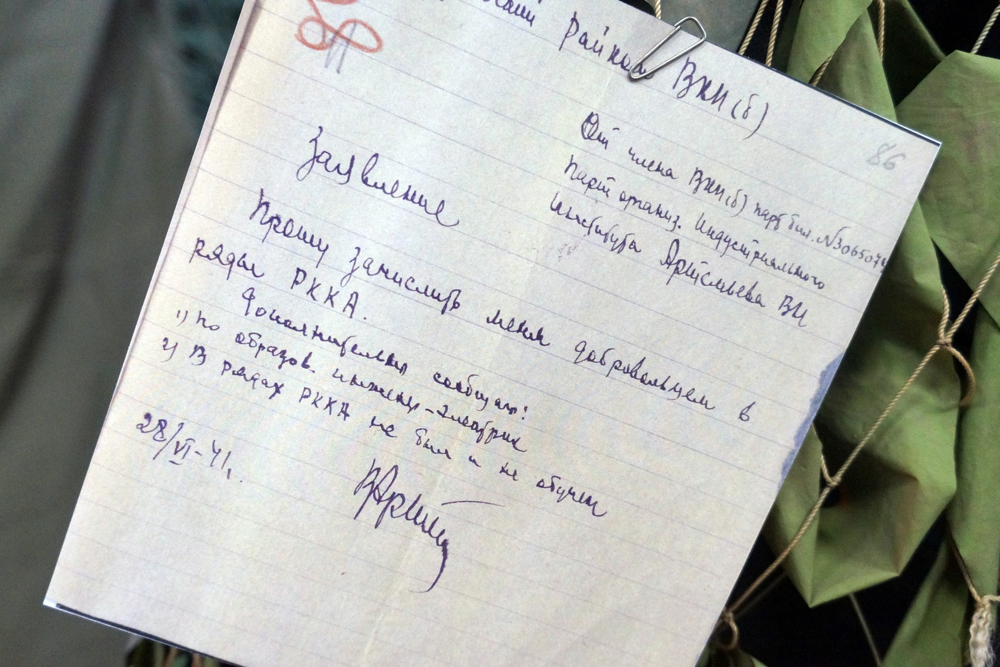 Райком ВКП(б)
86
От члена ВКП(б) парт бил. №3065074
Парт организ. Индустриального
Института Артемьева ВИ
Заявление
Прошу зачислить меня добровольцем в
ряды РККА.
Дополнительно сообщаю:
1) По образов. инженер-электрик
2) В рядах РККА не был и не обучен
28/VI-41г.